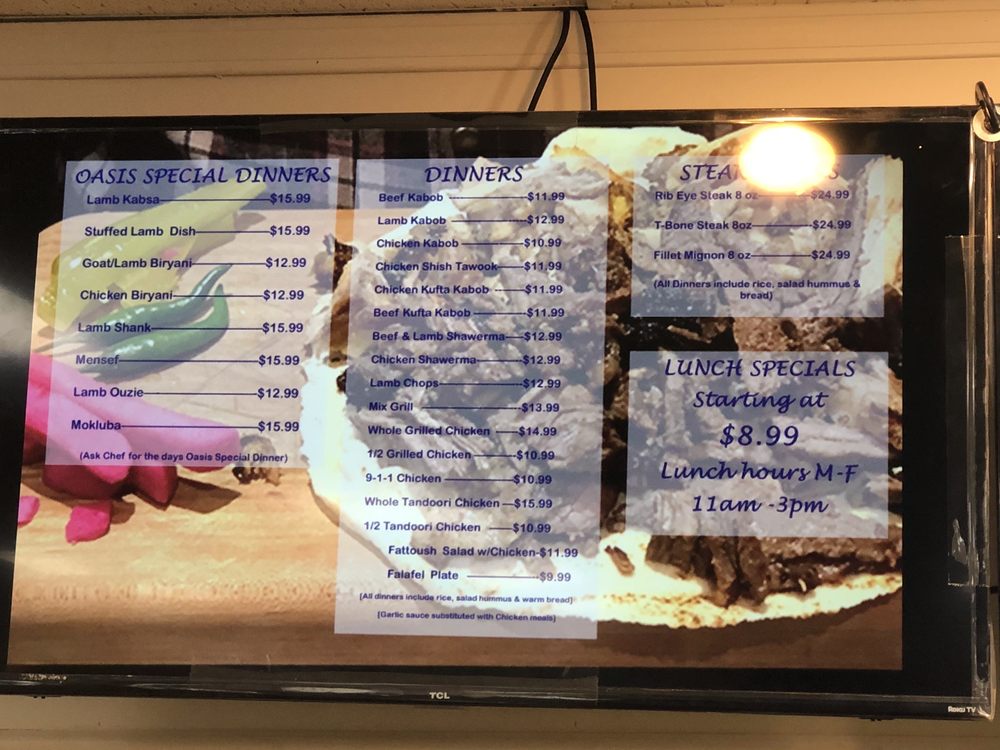 OASIS SPECIAL DINNERS
Lamb Kabsa $15.99
Stuffed Lamb Dish $15.99
Goat/Lamb Biryani $12.99
Chicken Biryani $12.99
Lamb Shank $15.99
Mensef $15.99
Lamb Ouzie $12.99
Mokluba $15.99
(Ask Chef for the days Oasis Special Dinner)
DINNERS
Beef Kabob $11.99
Lamb Kabob $12.99
Chicken Kabob $10.99
Chicken Shish Tawook $11.99
Chicken Kufta Kabob $11.99
Beef Kufta Kabob $11.99
Beef & Lamb Shawerma $12.99
Chicken Shawerma $12.99
Lamb Chops $12.99
Mix Grill $13.99
Whole Grilled Chicken $14.99
1/2 Grilled Chicken $10.99
9-1-1 Chicken $10.99
Whole Tandoori Chicken $15.99
1/2 Tandoori Chicken $10.99
Fattoush Salad w/Chicken-$11.99
Falafel Plate $9.99
(All dinners include rice, salad hummus & warm bread)
(Garlic sauce substituted with Chicken meals)
Rib Eye Steak 8 oz $24.99
T-Bone Steak 8oz $24.99
Fillet Mignon 8 oz $24.99
(All Dinners include rice, salad hummus &
bread)
LUNCH SPECIALS
Starting at
$8.99
Lunch hours M-F
11am -3pm
TCL
Roku TV